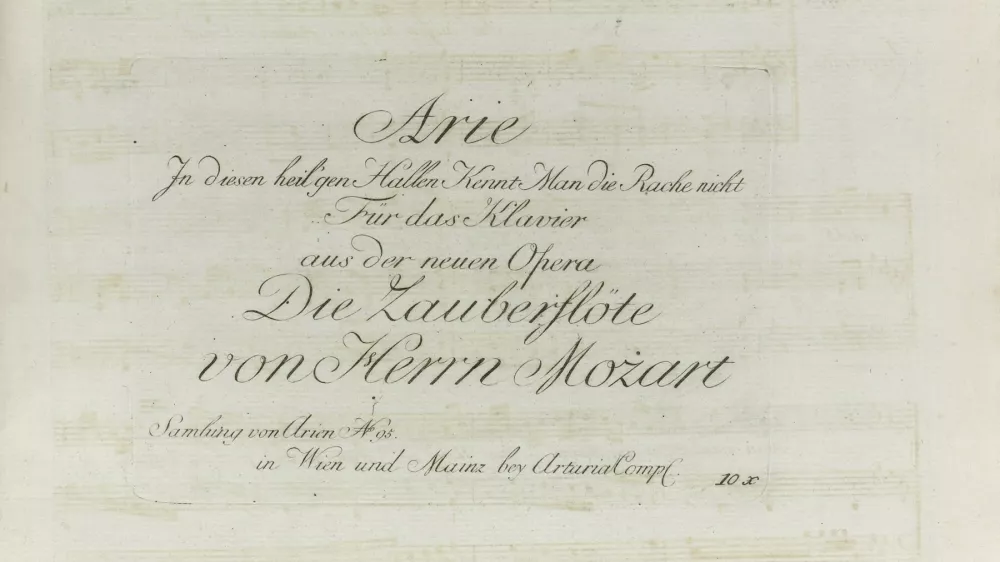 Arie
In diesen heil'gen Hallen Kennt Man die Rache nicht
Für das Klavier
aus der neuen Opera
Die Zauberflöte
von Herrn Mozart
Samlung von Arien No. 95.
in Wien und Mainz bey Artaria Comp.
10 x